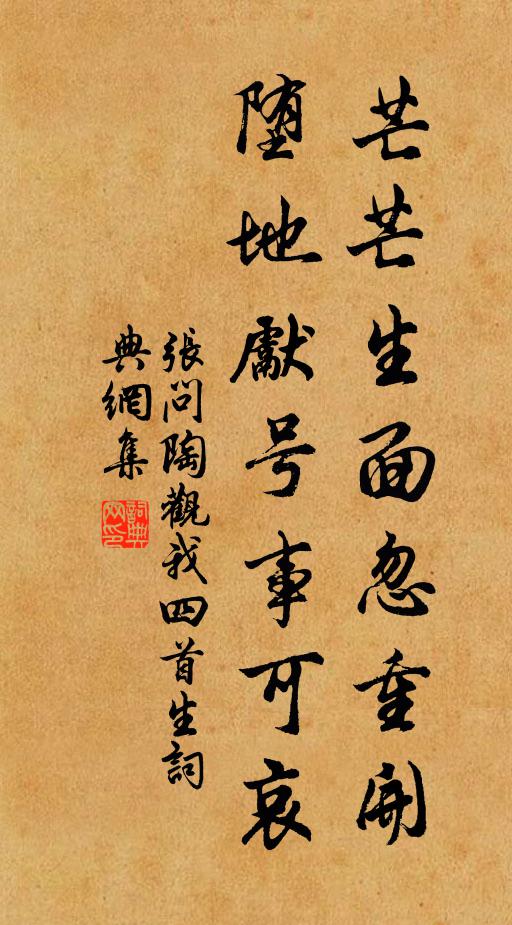 芒芒生面忽重開
堕地獻号事可哀
張問陶觀我四首生詞
典網集
詞典
网印